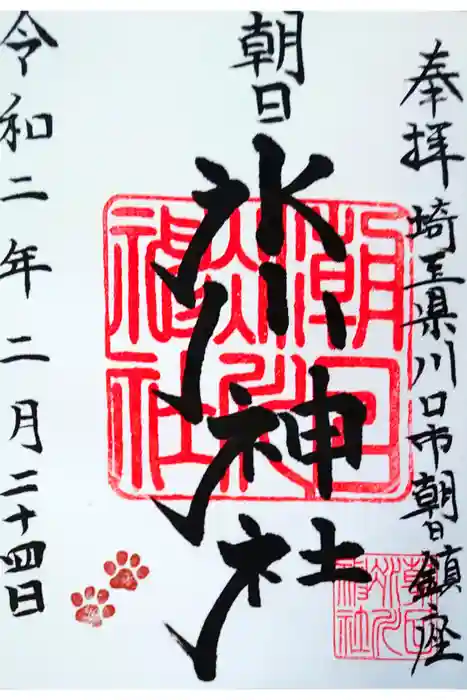 奉拝 埼玉県川口市朝日鎮座
朝日
氷川神社
令和二年二月二十四日